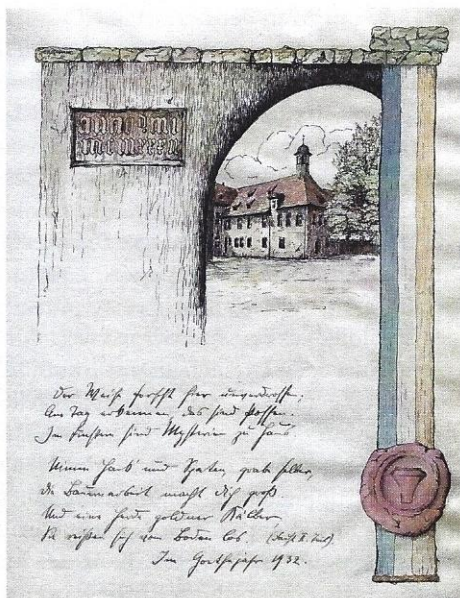 anno dmi
Der Weise forscht hier unverdrossen;
Am Tag erkennen, das sind Possen.
Im Finstern sind Mysterien zu Haus.
Nimm Hack' und Spaten, grabe selber,
die Bauernarbeit macht dich groß.
Und eine Herde goldner Kälber
Sie reißen sich vom Boden los. (Faust II. Teil).
Im Goethejahr 1932.